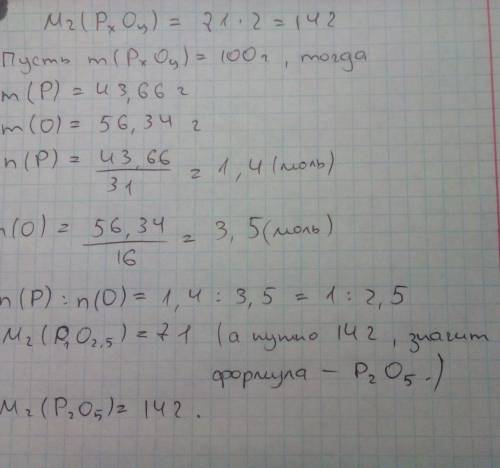 Mr(PxOy) = 71·2 = 142
Пусть m(PxOy) = 100г, тогда
m(P) = 43,66 г
m(O) = 56,34 г
n(P) = 43,66 / 31 = 1,4 (моль)
n(O) = 56,34 / 16 = 3,5 (моль)
n(P) : n(O) = 1,4 : 3,5 = 1 : 2,5
Mr(P1O2,5) = 71 (а нужно 142, значит
формула – P2O5.)
Mr(P2O5) = 142.